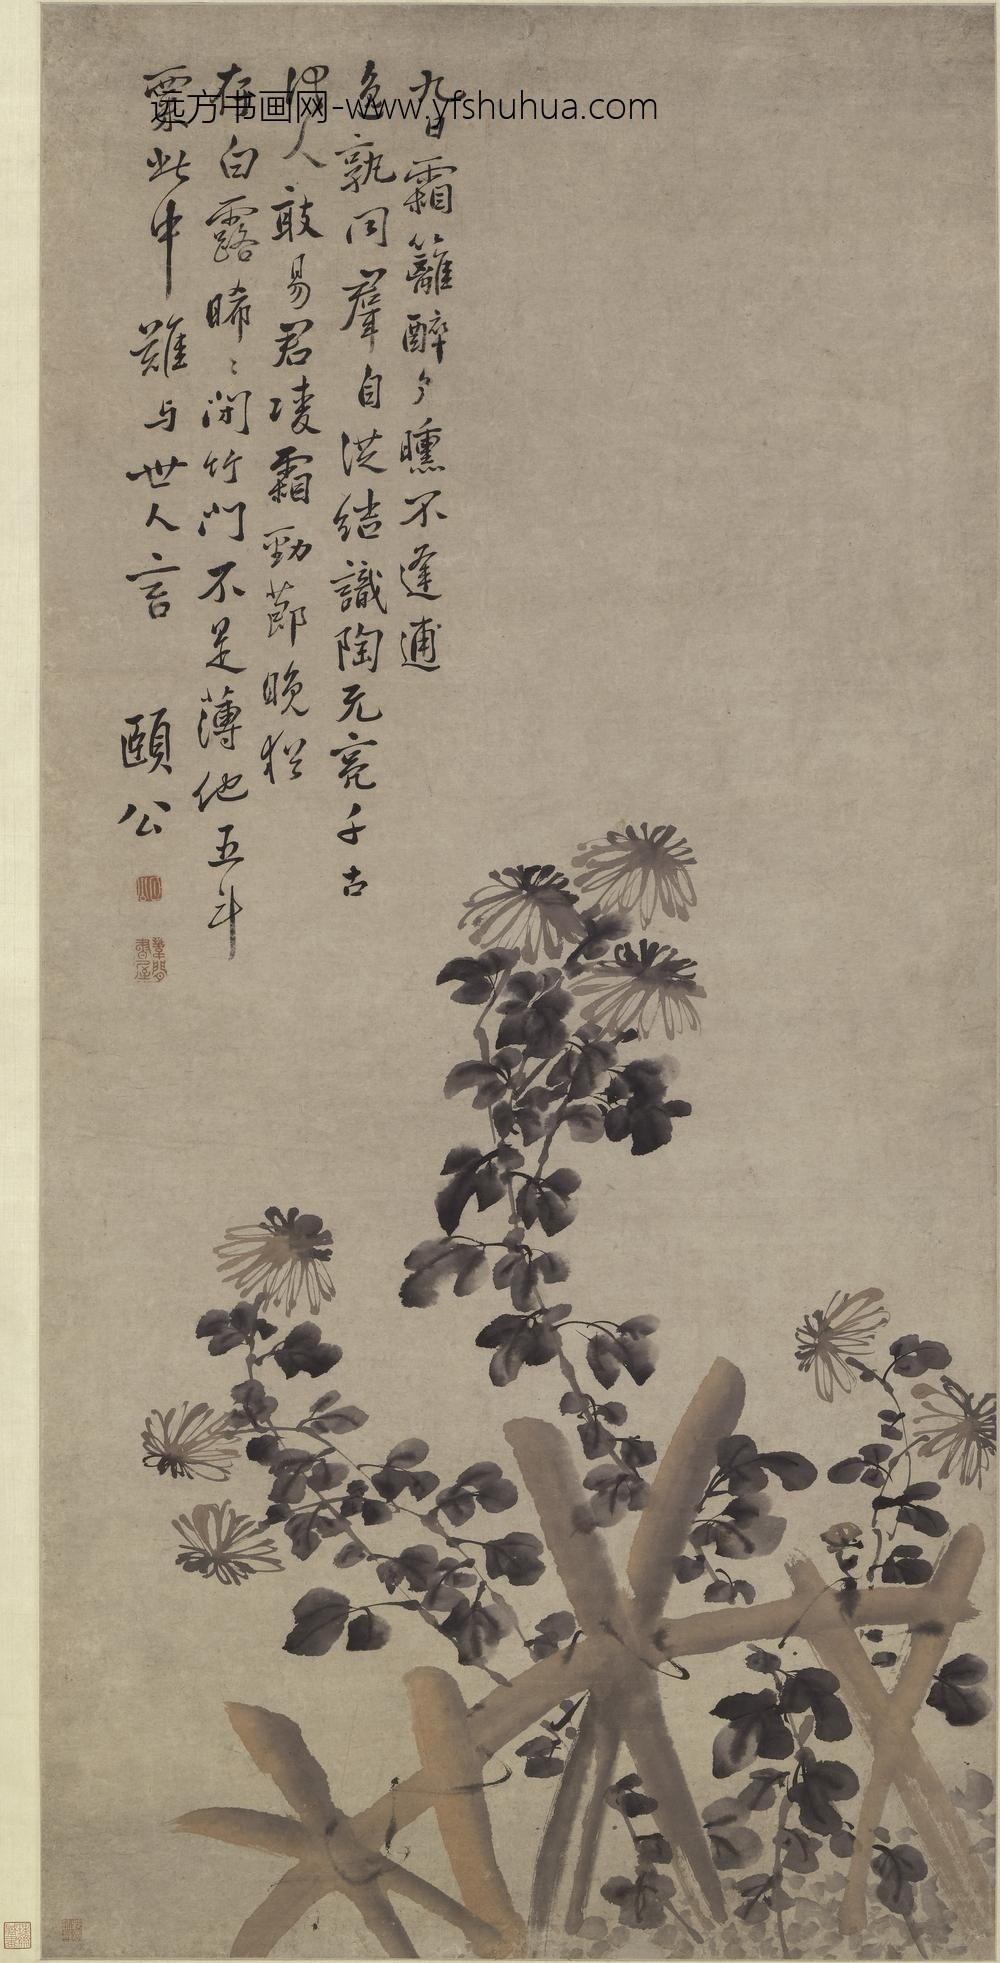 九日霜籬醉夕曛不逢逋
逸孰同羣自從結識陶元亮千古
何人敢易君凌霜勁節晚猶
存白露晞〻閉竹門不是薄他五斗
粟此中難与世人言
頤公
葦間書屋
远方书画网-www.yfshuhua.com